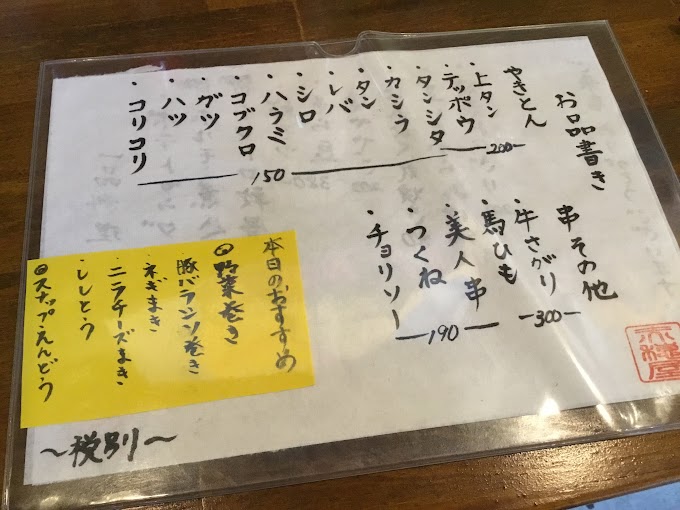 お品書き
やきとん
・上タン
・テッポウ
200
・タンシタ
・カシラ
・タン
・レバ
・シロ
・ハラミ
・コブクロ
・ガツ
・ハツ
・コリコリ
150
串その他
・牛さがり
300
・馬ひも
・美人串
・つくね
・チョリソー
190
本日のおすすめ
◎野菜巻き
・豚バラシソ巻き
・ネギまき
・ニラチーズまき
・ししとう
◎スナップえんどう
〜税別〜